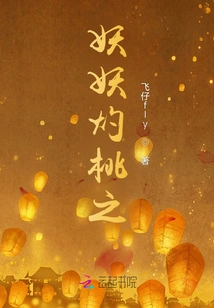 妖妖灼桃之
飞仔fly 著
云起书院